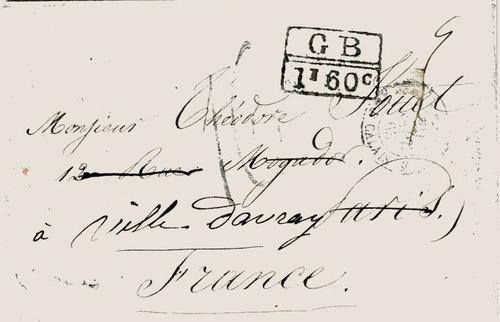 GB
1F60c
Monsieur Théodore
12 Rue Mogador.
à Ville-davray Paris.)
France.